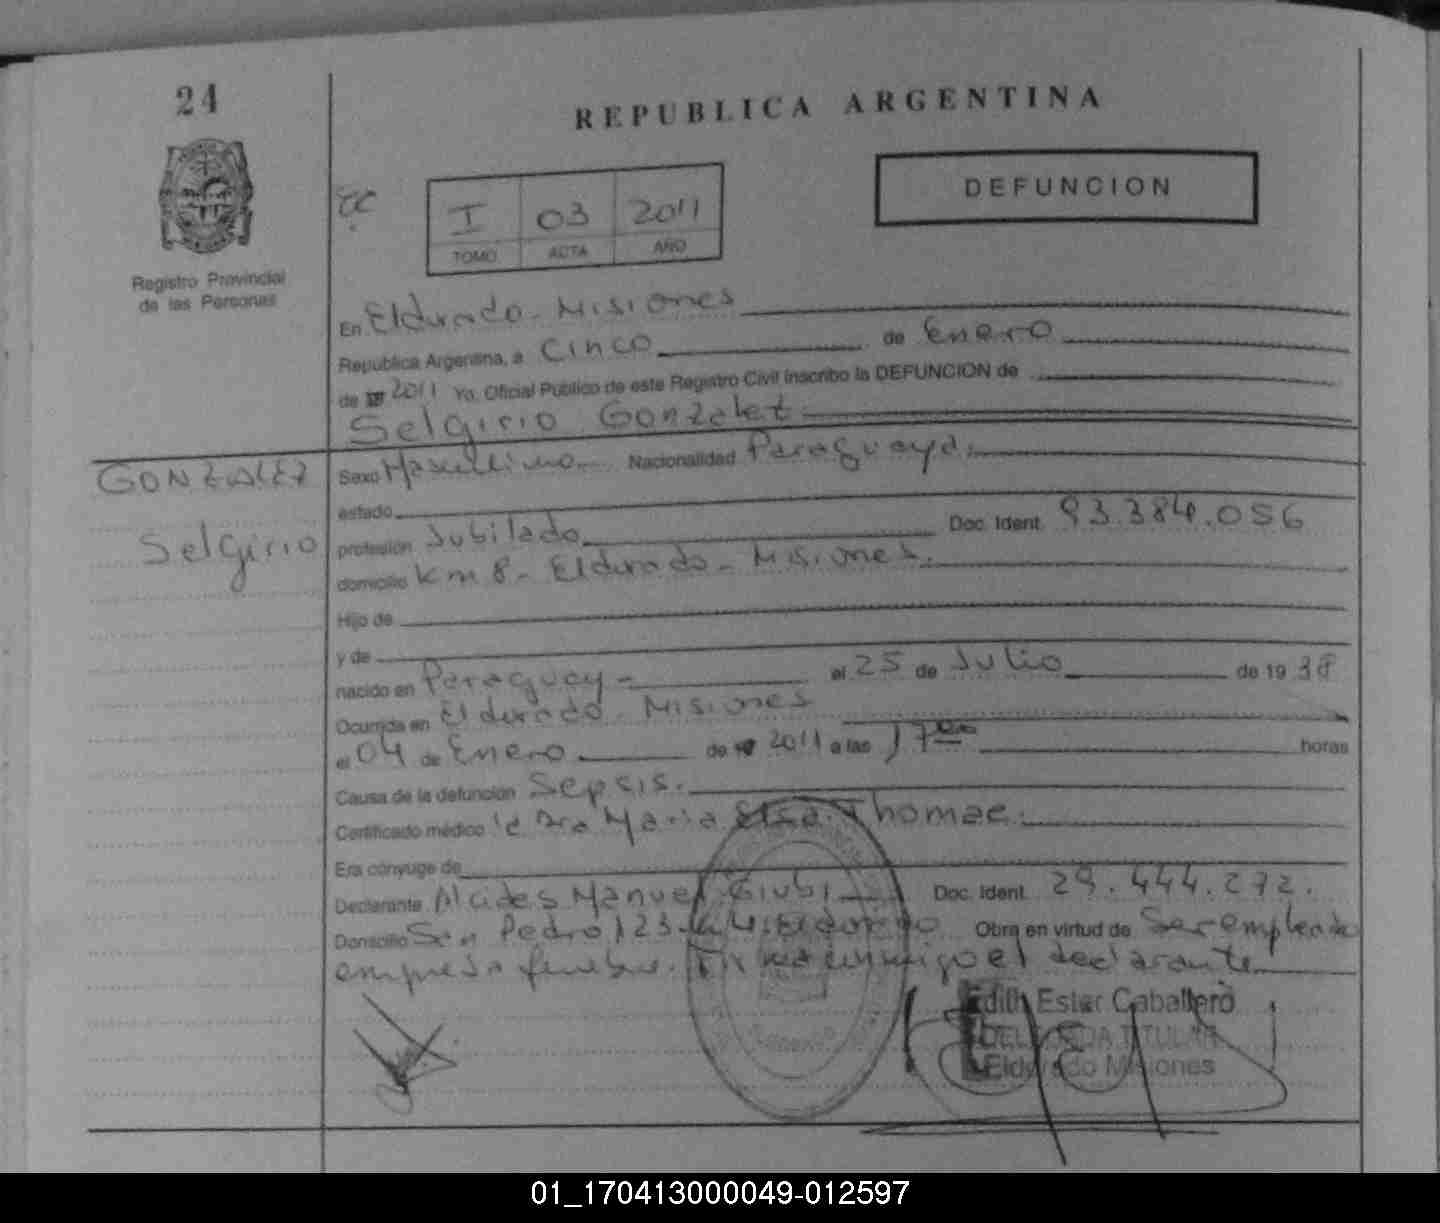 24
REPUBLICA ARGENTINA
DEFUNCION
I 03 2011
TOMO ACTA AÑO
Registro Provincial
de las Personas
En Eldorado - Misiones
República Argentina, a Cinco de Enero
de 2011 Yo, Oficial Público de este Registro Civil inscribo la DEFUNCION de
Selgirio Gonzalez
GONZALEZ
Selgirio
Sexo Masculino Nacionalidad Paraguaya.
estado
profesión Jubilado Doc. Ident. 93.384.056
domicilio Km 8 - Eldorado - Misiones.
Hijo de
y de
nacido en Paraguay - el 25 de Julio de 19 38
Ocurrida en Eldorado - Misiones
el 04 de Enero de 2011 a las 17 00 horas
Causa de la defunción Sepsis.
Certificado médico Dra Maria Elsa Thomae.
Era cónyuge de
Declarante Alcides Manuel Giubi Doc. Ident. 29.444.272.
Domicilio San Pedro 123 Eldorado Obra en virtud de Ser empleado
empresa funebre. el declarante
Edith Ester Caballero
DELEGADA TITULAR
Eldorado Misiones
01_170413000049-012597